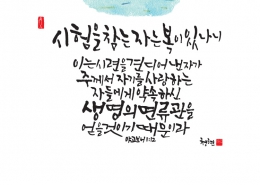 시험을 참는 자는 복이 있나니
이는 시련을 견디어 낸 자가
주께서 자기를 사랑하는
자들에게 약속하신
생명의 면류관을
얻을 것이기 때문이라
야고보서 1:12